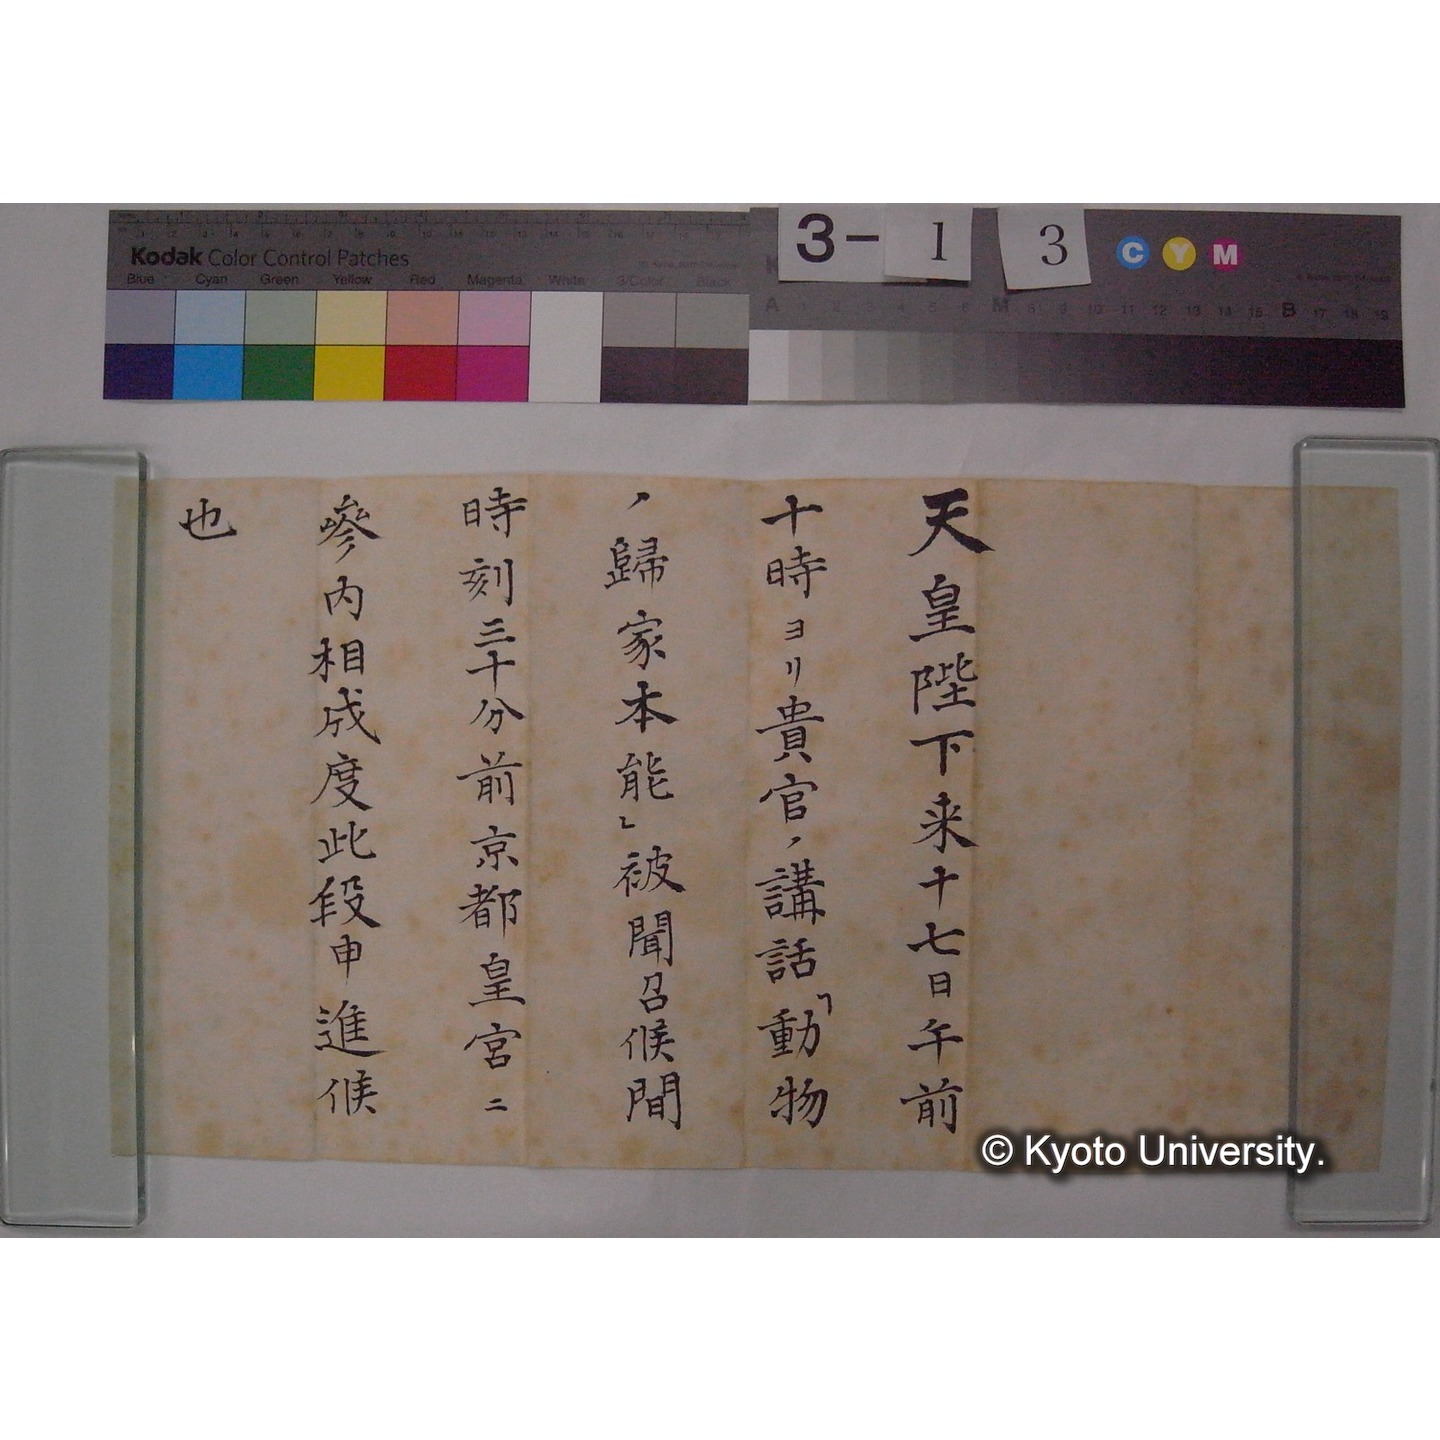 Kodak Color Control Patches
Blue Cyan Green Yellow Red Magenta White 3/Color Black
3- 1 3
C Y M
A 1 2 3 4 5 6 M 8 9 10 11 12 13 14 15 B 17 18 19
天皇陛下来十七日午前
十時ヨリ貴官ノ講話「動物
ノ歸家本能」被聞召候間
時刻三十分前京都皇宮ニ
參内相成度此段申進候
也
© Kyoto University.